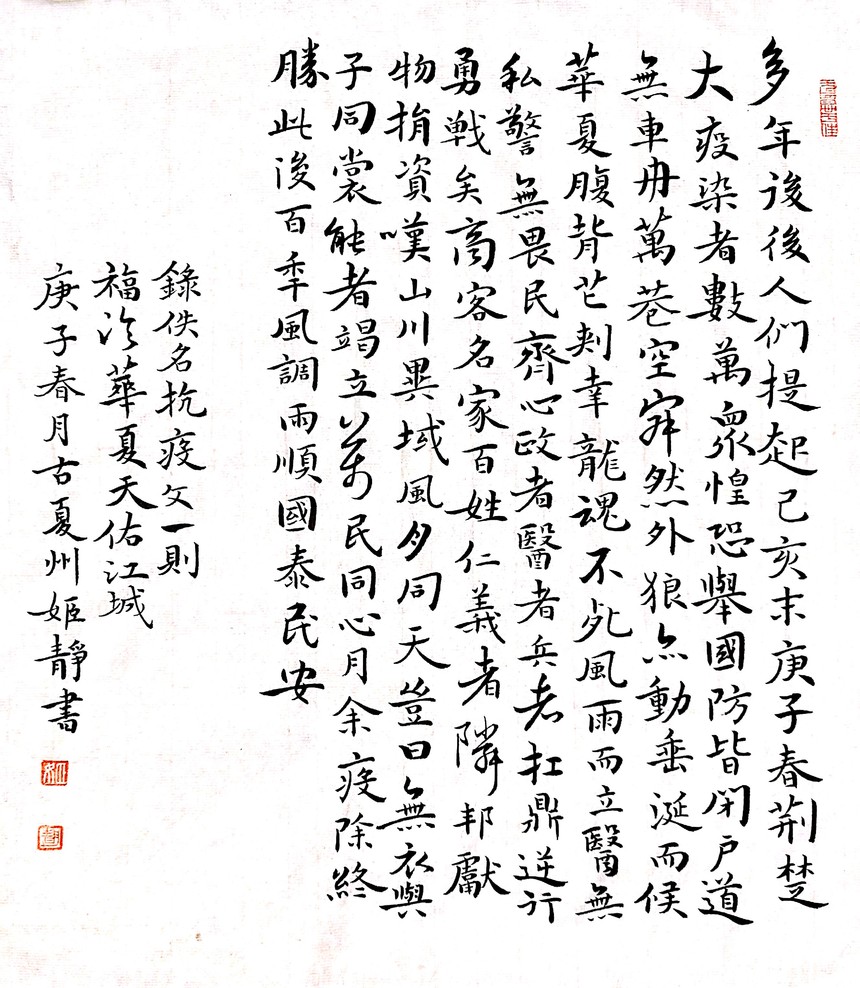 多年後後人們提起己亥末庚子春荆楚
大疫染者數萬眾惶恐舉國防皆闭户道
無車舟萬巷空寂然外狼亦動垂涎而候
華夏腹背芒刺幸龍魂不死風雨而立醫無
私警無畏民齊心政者醫者兵者扛鼎逆行
勇戦矣商客名家百姓仁義者隣邦獻
物捐資嘆山川異域風月同天豈曰無衣與
子同裳能者竭立萬民同心月余疫除終
勝此後百年風調雨順國泰民安
錄佚名抗疫文一則
福泠華夏天佑江城
庚子春月古夏州姬靜書